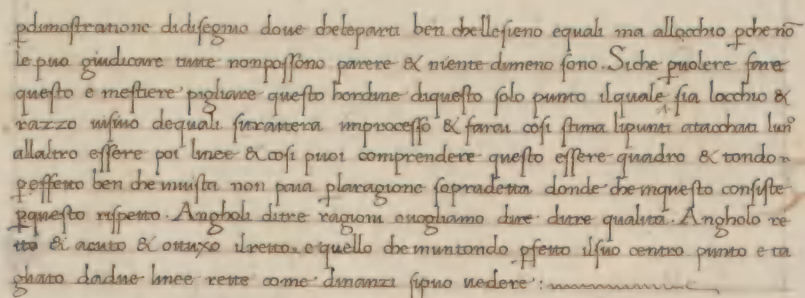 pdimostratione didisegnio doue cheleparti ben chellesieno equali ma allocchio pche nō
le puo giudicare tutte nonpossono parere & niente dimeno sono. Siche puolere fare
questo e mestiere pigliare questo hordine diquesto solo punto ilquale sia locchio &
razzo uisiuo dequali sitrattera improcesso & farai cosi stima lipunti ataccati lunº
allaltro essere poi linee & cosi puoi comprendere questo essere quadro & tondo
pefetto ben che inuista non paia plaragione sopradetta donde che inquesto consiste
pquesto rispetto. Angholi ditre ragioni cuogliamo dire ditre qualita. Angholo re
tto & acuto & ottuxo ilretto e quello che inuntondo pfetto ilsuo centro punto e ta
ghato dadue linee rette come dinanzi sipuo uedere: